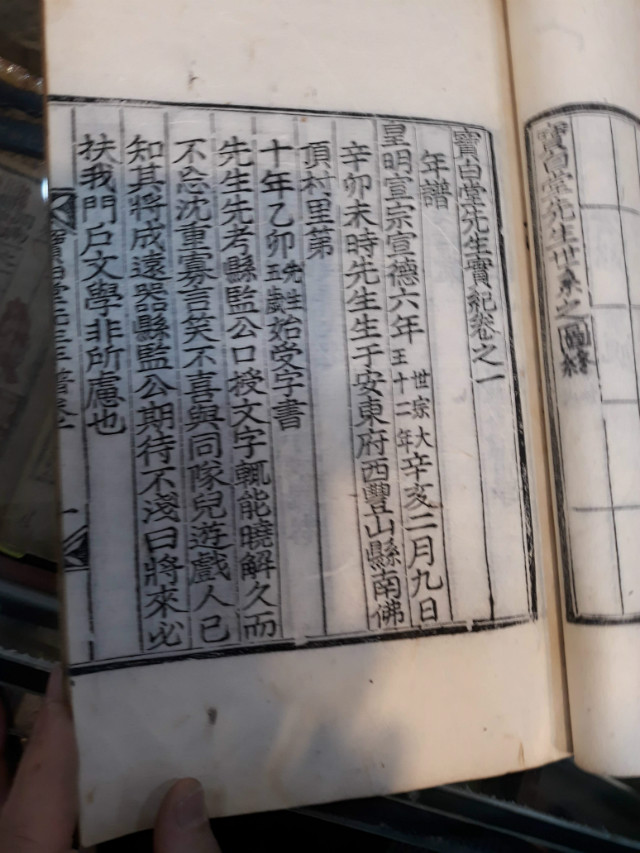 寶白堂先生世系之圖終
寶白堂先生實紀卷之一
年譜
皇明宣宗宣德六年世宗大王十二年辛亥二月九日
辛卯未時先生生于安東府西豐山縣南佛
頂村里第
十年乙卯先生五歲始受字書
先生先考縣監公口授文字輒能曉解久而
不忘沈重寡言笑不喜與同隊兒遊戲人已
知其將成遠器縣監公期待不淺曰將來必
扶我門戶文學非所慮也